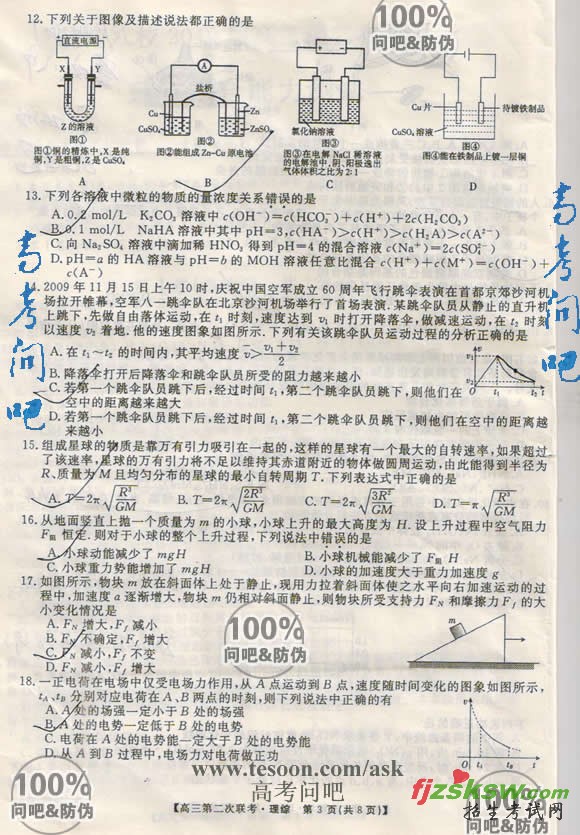 12.下列关于图像及描述说法都正确的是
直流电源
X
Y
Z的溶液
图①
图①铜的精炼中,X是纯
铜,Y是粗铜,Z是CuSO₄
A
盐桥
Cu
Zn
CuSO₄
ZnSO₄
图②
图②能组成Zn-Cu原电池
B
氯化钠溶液
图③
图③在电解NaCl稀溶液
的电解池中,阴、阳极逸出
气体体积之比为2:1
C
Cu片
待镀铁制品
CuSO₄溶液
图④
图④能在铁制品上镀一层铜
D
13.下列各溶液中微粒的物质的量浓度关系错误的是
A.0.2 mol/L K₂CO₃溶液中c(OH⁻)=c(HCO₃⁻)+c(H⁺)+2c(H₂CO₃)
B.0.1 mol/L NaHA溶液中其中pH=3,c(HA⁻)>c(H⁺)>c(H₂A)>c(A²⁻)
C.向Na₂SO₄溶液中滴加稀HNO₃得到pH=4的混合溶液c(Na⁺)=2c(SO₄²⁻)
D.pH=a的HA溶液与pH=b的MOH溶液任意比混合c(H⁺)+c(M⁺)=c(OH⁻)+
c(A⁻)
14.2009年11月15日上午10时,庆祝中国空军成立60周年飞行跳伞表演在首都京郊沙河机
场拉开帷幕,空军八一跳伞队在北京沙河机场举行了首场表演.某跳伞队员从静止的直升机
上跳下,先做自由落体运动,在t₁时刻,速度达到v₁时打开降落伞,做减速运动,在t₂时刻
以速度v₂着地.他的速度图象如图所示.下列有关该跳伞队员运动过程的分析正确的是
A.在t₁~t₂的时间内,其平均速度v̄>(v₁+v₂)/2
B.降落伞打开后降落伞和跳伞队员所受的阻力越来越小
C.若第一个跳伞队员跳下后,经过时间t₁,第二个跳伞队员跳下,则他们在
空中的距离越来越大
D.若第一个跳伞队员跳下后,经过时间t₁,第二个跳伞队员跳下,则他们在空中的距离越
来越小
15.组成星球的物质是靠万有引力吸引在一起的,这样的星球有一个最大的自转速率,如果超过
了该速率,星球的万有引力将不足以维持其赤道附近的物体做圆周运动,由此能得到半径为
R、质量为M且均匀分布的星球的最小自转周期T.下列表达式中正确的是
A.T=2π√(R³/GM) B.T=2π√(2R³/GM) C.T=2π√(3R²/GM) D.T=π√(R³/GM)
16.从地面竖直上抛一个质量为m的小球,小球上升的最大高度为H.设上升过程中空气阻力
F阻恒定.则对于小球的整个上升过程,下列说法中错误的是
A.小球动能减少了mgH B.小球机械能减少了F阻H
C.小球重力势能增加了mgH D.小球的加速度大于重力加速度g
17.如图所示,物块m放在斜面体上处于静止,现用力拉着斜面体使之水平向右加速运动的过
程中,加速度a逐渐增大,物块m仍相对斜面静止,则物块所受支持力F_N和摩擦力F_f的大
小变化情况是
A.F_N增大,F_f减小
B.F_N不确定,F_f增大
C.F_N减小,F_f不变
D.F_N减小,F_f增大
m
18.一正电荷在电场中仅受电场力作用,从A点运动到B点,速度随时间变化的图象如图所示,
t_A、t_B分别对应电荷在A、B两点的时刻,则下列说法中正确的有
A.A处的场强一定小于B处的场强
B.A处的电势一定低于B处的电势
C.电荷在A处的电势能一定大于B处的电势能
D.从A到B过程中,电场力对电荷做正功
【高三第二次联考·理综 第3页(共8页)】
100%
问吧&防伪
100%
问吧&防伪
100%
问吧&防伪
100%
高考问吧
高考问吧
www.tesoon.com/ask
高考问吧
fjzsksw.com
招生考试网